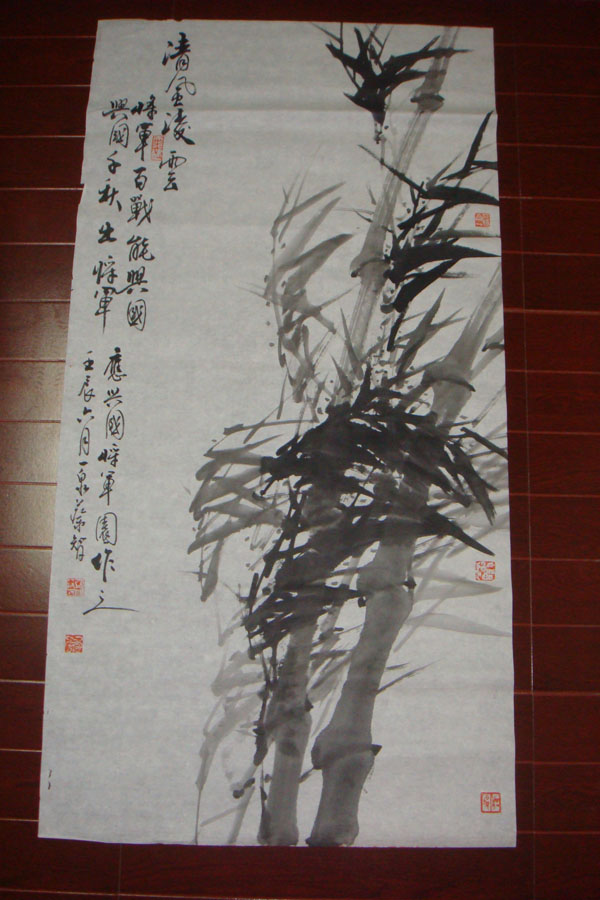 清風凌雲
將軍百戰能興國
興國千秋出將軍
應興國將軍園作之
壬辰六月一泉